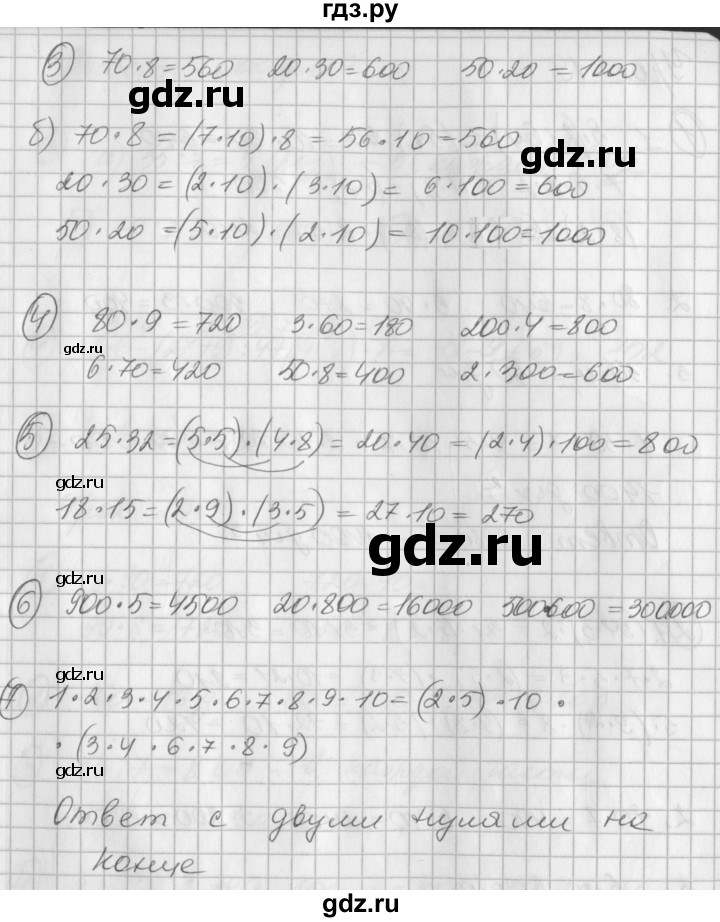 гдз.ру
3) 70·8=560 20·30=600 50·20=1000
gdz.ru
б) 70·8=(7·10)·8=56·10=560
gdz.ru
20·30=(2·10)·(3·10)=6·100=600
50·20=(5·10)·(2·10)=10·100=1000
4) 80·9=720 3·60=180 200·4=800
gdz.ru
6·70=420 50·8=400 2·300=600
5) 25·32=(5·5)·(4·8)=20·40=(2·4)·100=800
gdz.ru
18·15=(2·9)·(3·5)=27·10=270
gdz.ru
gdz.ru
6) 900·5=4500 20·800=16000 500·600=300000
gdz.ru
7) 1·2·3·4·5·6·7·8·9·10=(2·5)·10·
·(3·4·6·7·8·9)
gdz.ru
Ответ с двумя нулями на
конце
gdz.ru
gdz.ru